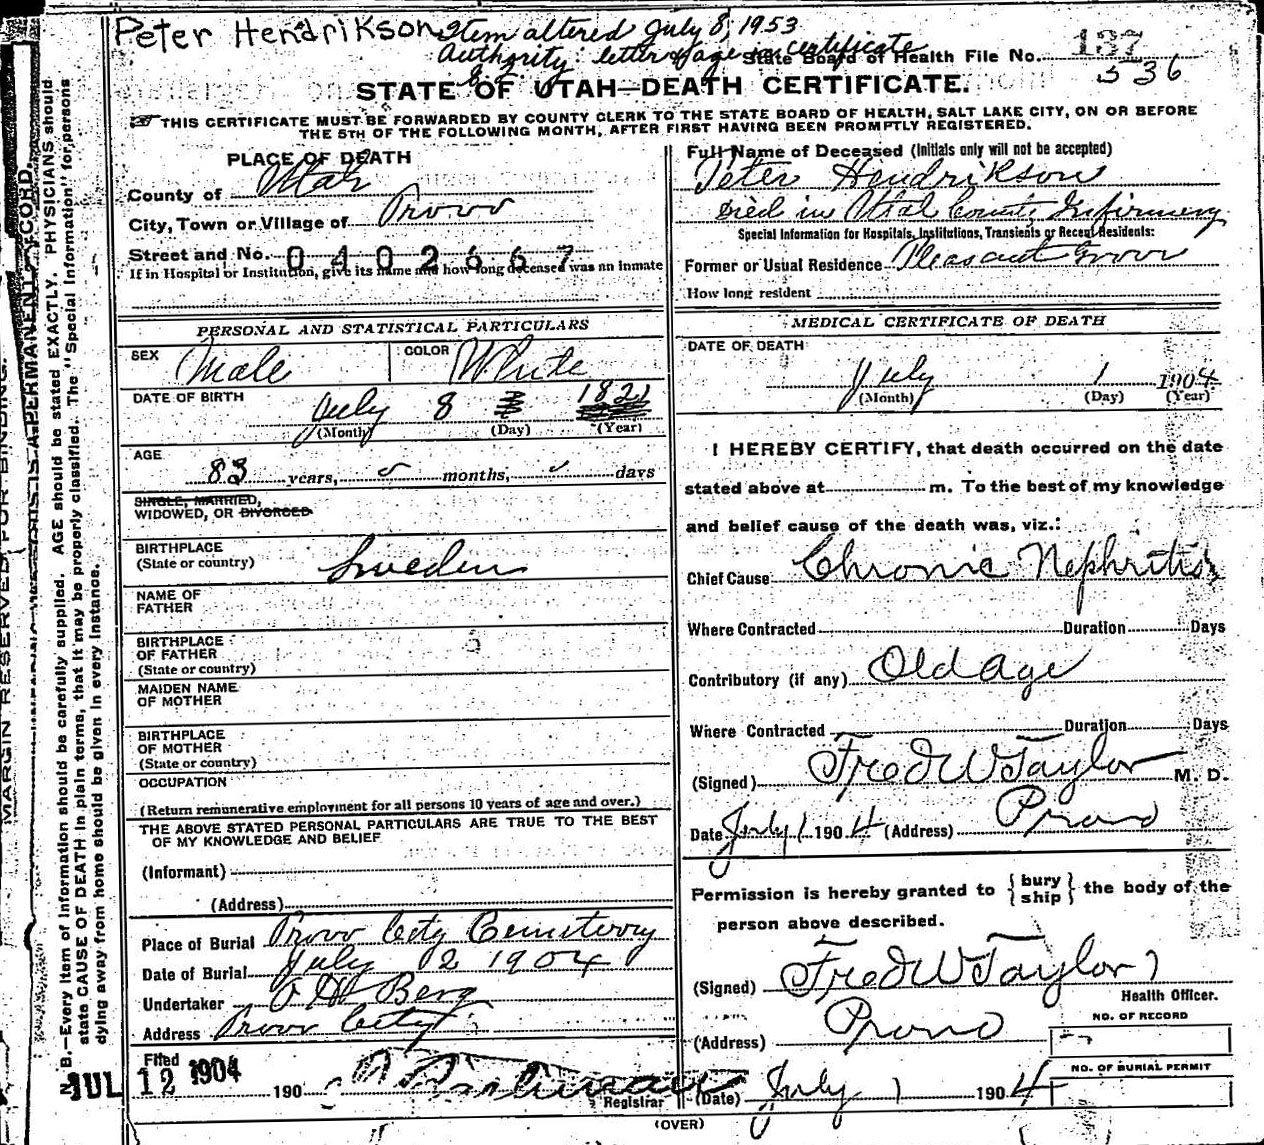 Peter Hendrikson Item altered July 8, 1953
Authority: letter & age on certificate
State Board of Health File No. 137
536
STATE OF UTAH—DEATH CERTIFICATE.
THIS CERTIFICATE MUST BE FORWARDED BY COUNTY CLERK TO THE STATE BOARD OF HEALTH, SALT LAKE CITY, ON OR BEFORE
THE 5TH OF THE FOLLOWING MONTH, AFTER FIRST HAVING BEEN PROMPTLY REGISTERED.
MARGIN RESERVED FOR BINDING.
N. B.—Every item of Information should be carefully supplied. AGE should be stated EXACTLY. PHYSICIANS should
state CAUSE OF DEATH in plain terms, that it may be properly classified. The "Special Information" for persons
dying away from home should be given in every instance.
PLACE OF DEATH
County of Utah
City, Town or Village of Provo
Street and No. 0402667
If in Hospital or Institution, give its name and how long deceased was an inmate
PERSONAL AND STATISTICAL PARTICULARS
SEX Male COLOR White
DATE OF BIRTH July 8 1821
(Month) (Day) (Year)
AGE
83 years, months, days
SINGLE, MARRIED,
WIDOWED, OR DIVORCED
BIRTHPLACE
(State or country) Sweden
NAME OF
FATHER
BIRTHPLACE
OF FATHER
(State or country)
MAIDEN NAME
OF MOTHER
BIRTHPLACE
OF MOTHER
(State or country)
OCCUPATION
(Return remunerative employment for all persons 10 years of age and over.)
THE ABOVE STATED PERSONAL PARTICULARS ARE TRUE TO THE BEST
OF MY KNOWLEDGE AND BELIEF
(Informant)
(Address)
Place of Burial Provo City Cemeterry
Date of Burial July 2 1904
Undertaker O H Berg
Address Provo City
Filed
JUL 12 1904 190
Registrar
Full Name of Deceased (Initials only will not be accepted)
Peter Hendrikson
Died in Utah County Infirmery
Special Information for Hospitals, Institutions, Transients or Recent Residents:
Former or Usual Residence Pleasant Grove
How long resident
MEDICAL CERTIFICATE OF DEATH
DATE OF DEATH
July 1 1904
(Month) (Day) (Year)
I HEREBY CERTIFY, that death occurred on the date
stated above at m. To the best of my knowledge
and belief cause of the death was, viz.:
Chief Cause Chronic Nephritis
Where Contracted Duration Days
Contributory (if any) Old Age
Where Contracted Duration Days
(Signed) Fred W Taylor M. D.
Date July 1 1904 (Address) Provo
Permission is hereby granted to { bury ship } the body of the
person above described.
(Signed) Fred W Taylor
Health Officer.
(Address) Provo
NO. OF RECORD
NO. OF BURIAL PERMIT
(Date) July 1 1904
(OVER)